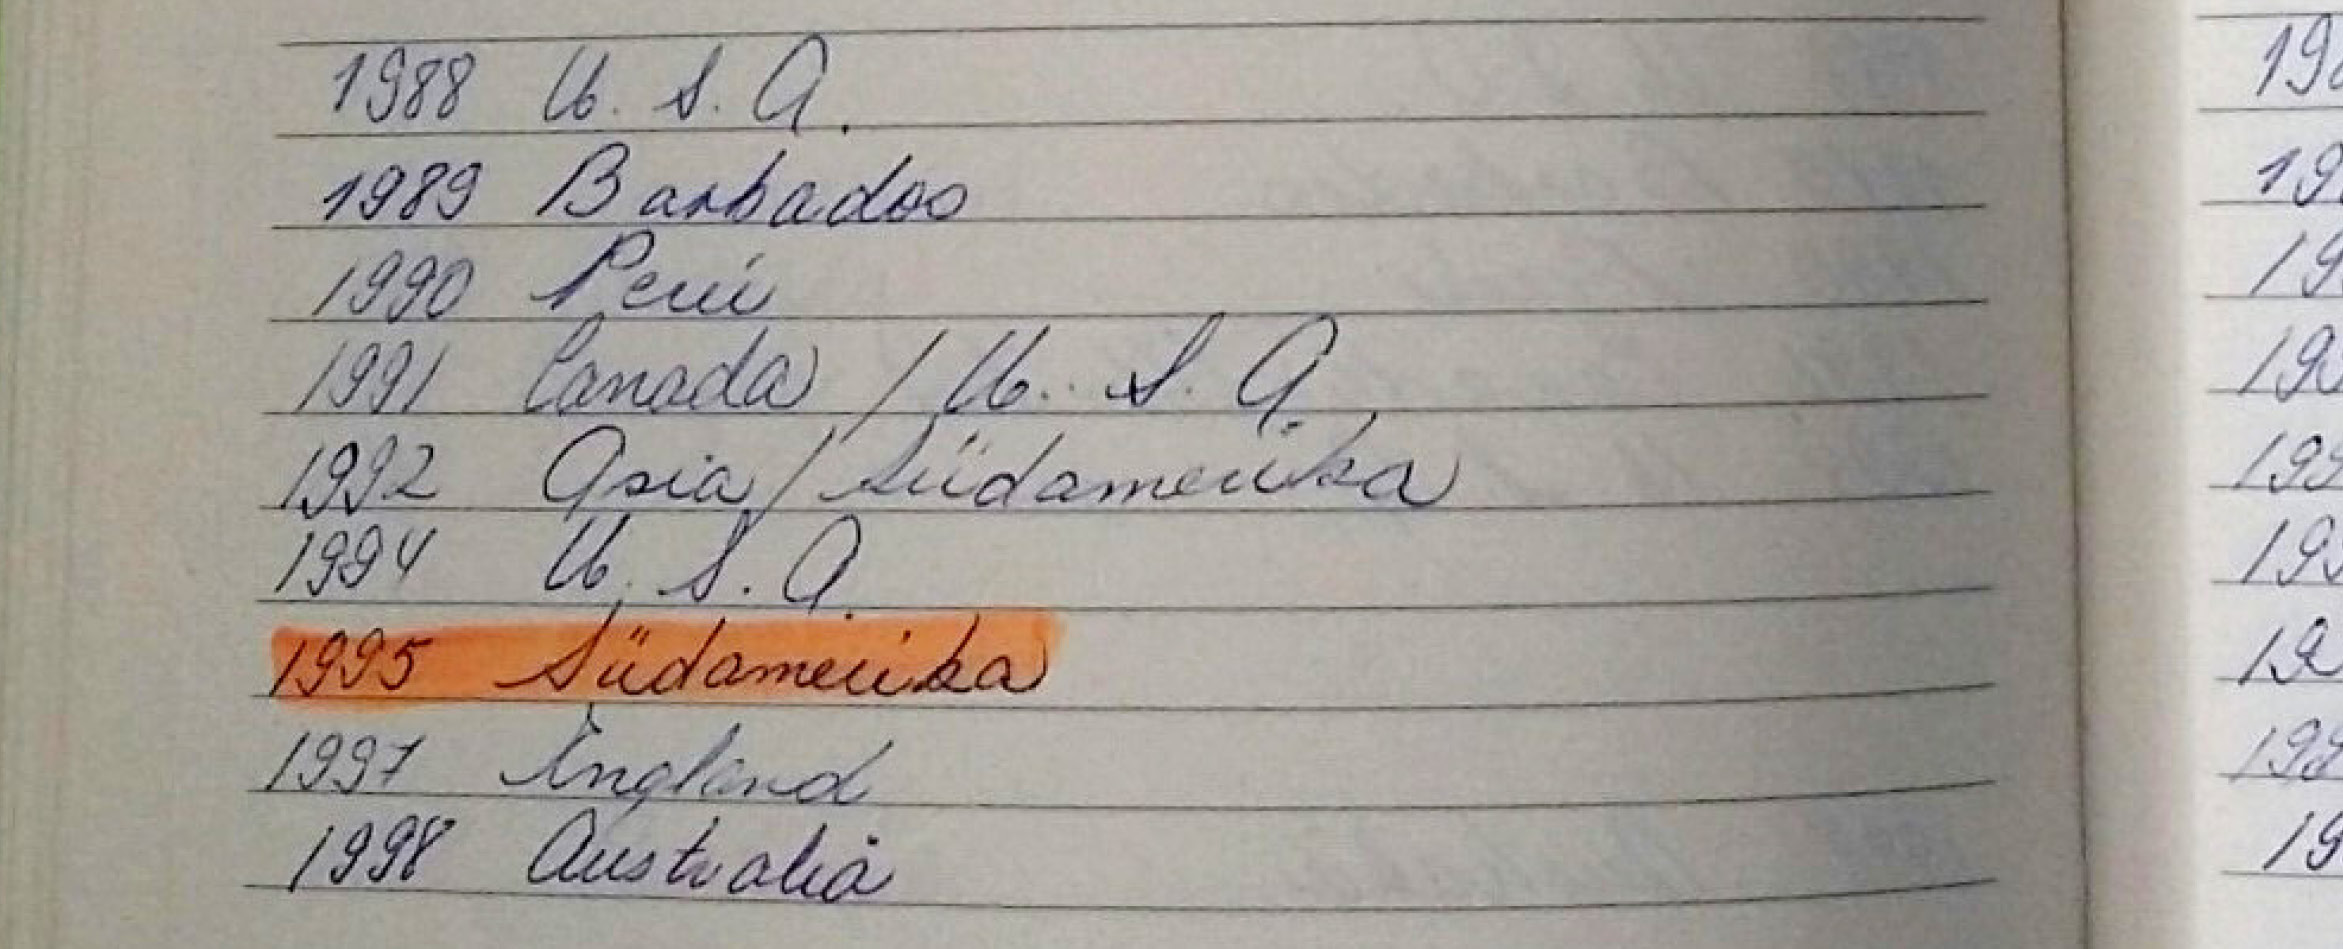 1988 U. S. A.
1989 Barbados
1990 Perú
1991 Canada / U. S. A.
1992 Asia / Südamerika
1994 U. S. A.
1995 Südamerika
1997 England
1998 Australia